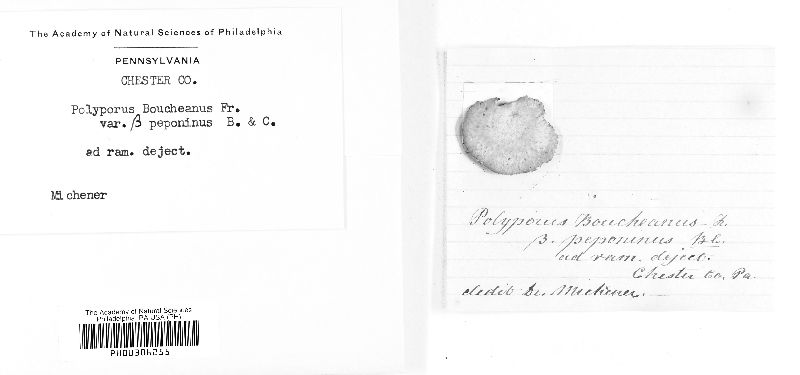 The Academy of Natural Sciences of Philadelphia
PENNSYLVANIA
CHESTER CO.
Polyporus Boucheanus Fr.
var. β peponinus B. & C.
ad ram. deject.
Michener
The Academy of Natural Sciences
Philadelphia, PA USA (PH)
PH00306255
Polyporus Boucheanus Fr.
β. peponinus BC.
ad ram. deject.
Chester Co. Pa.
dedit Dr. Michener.